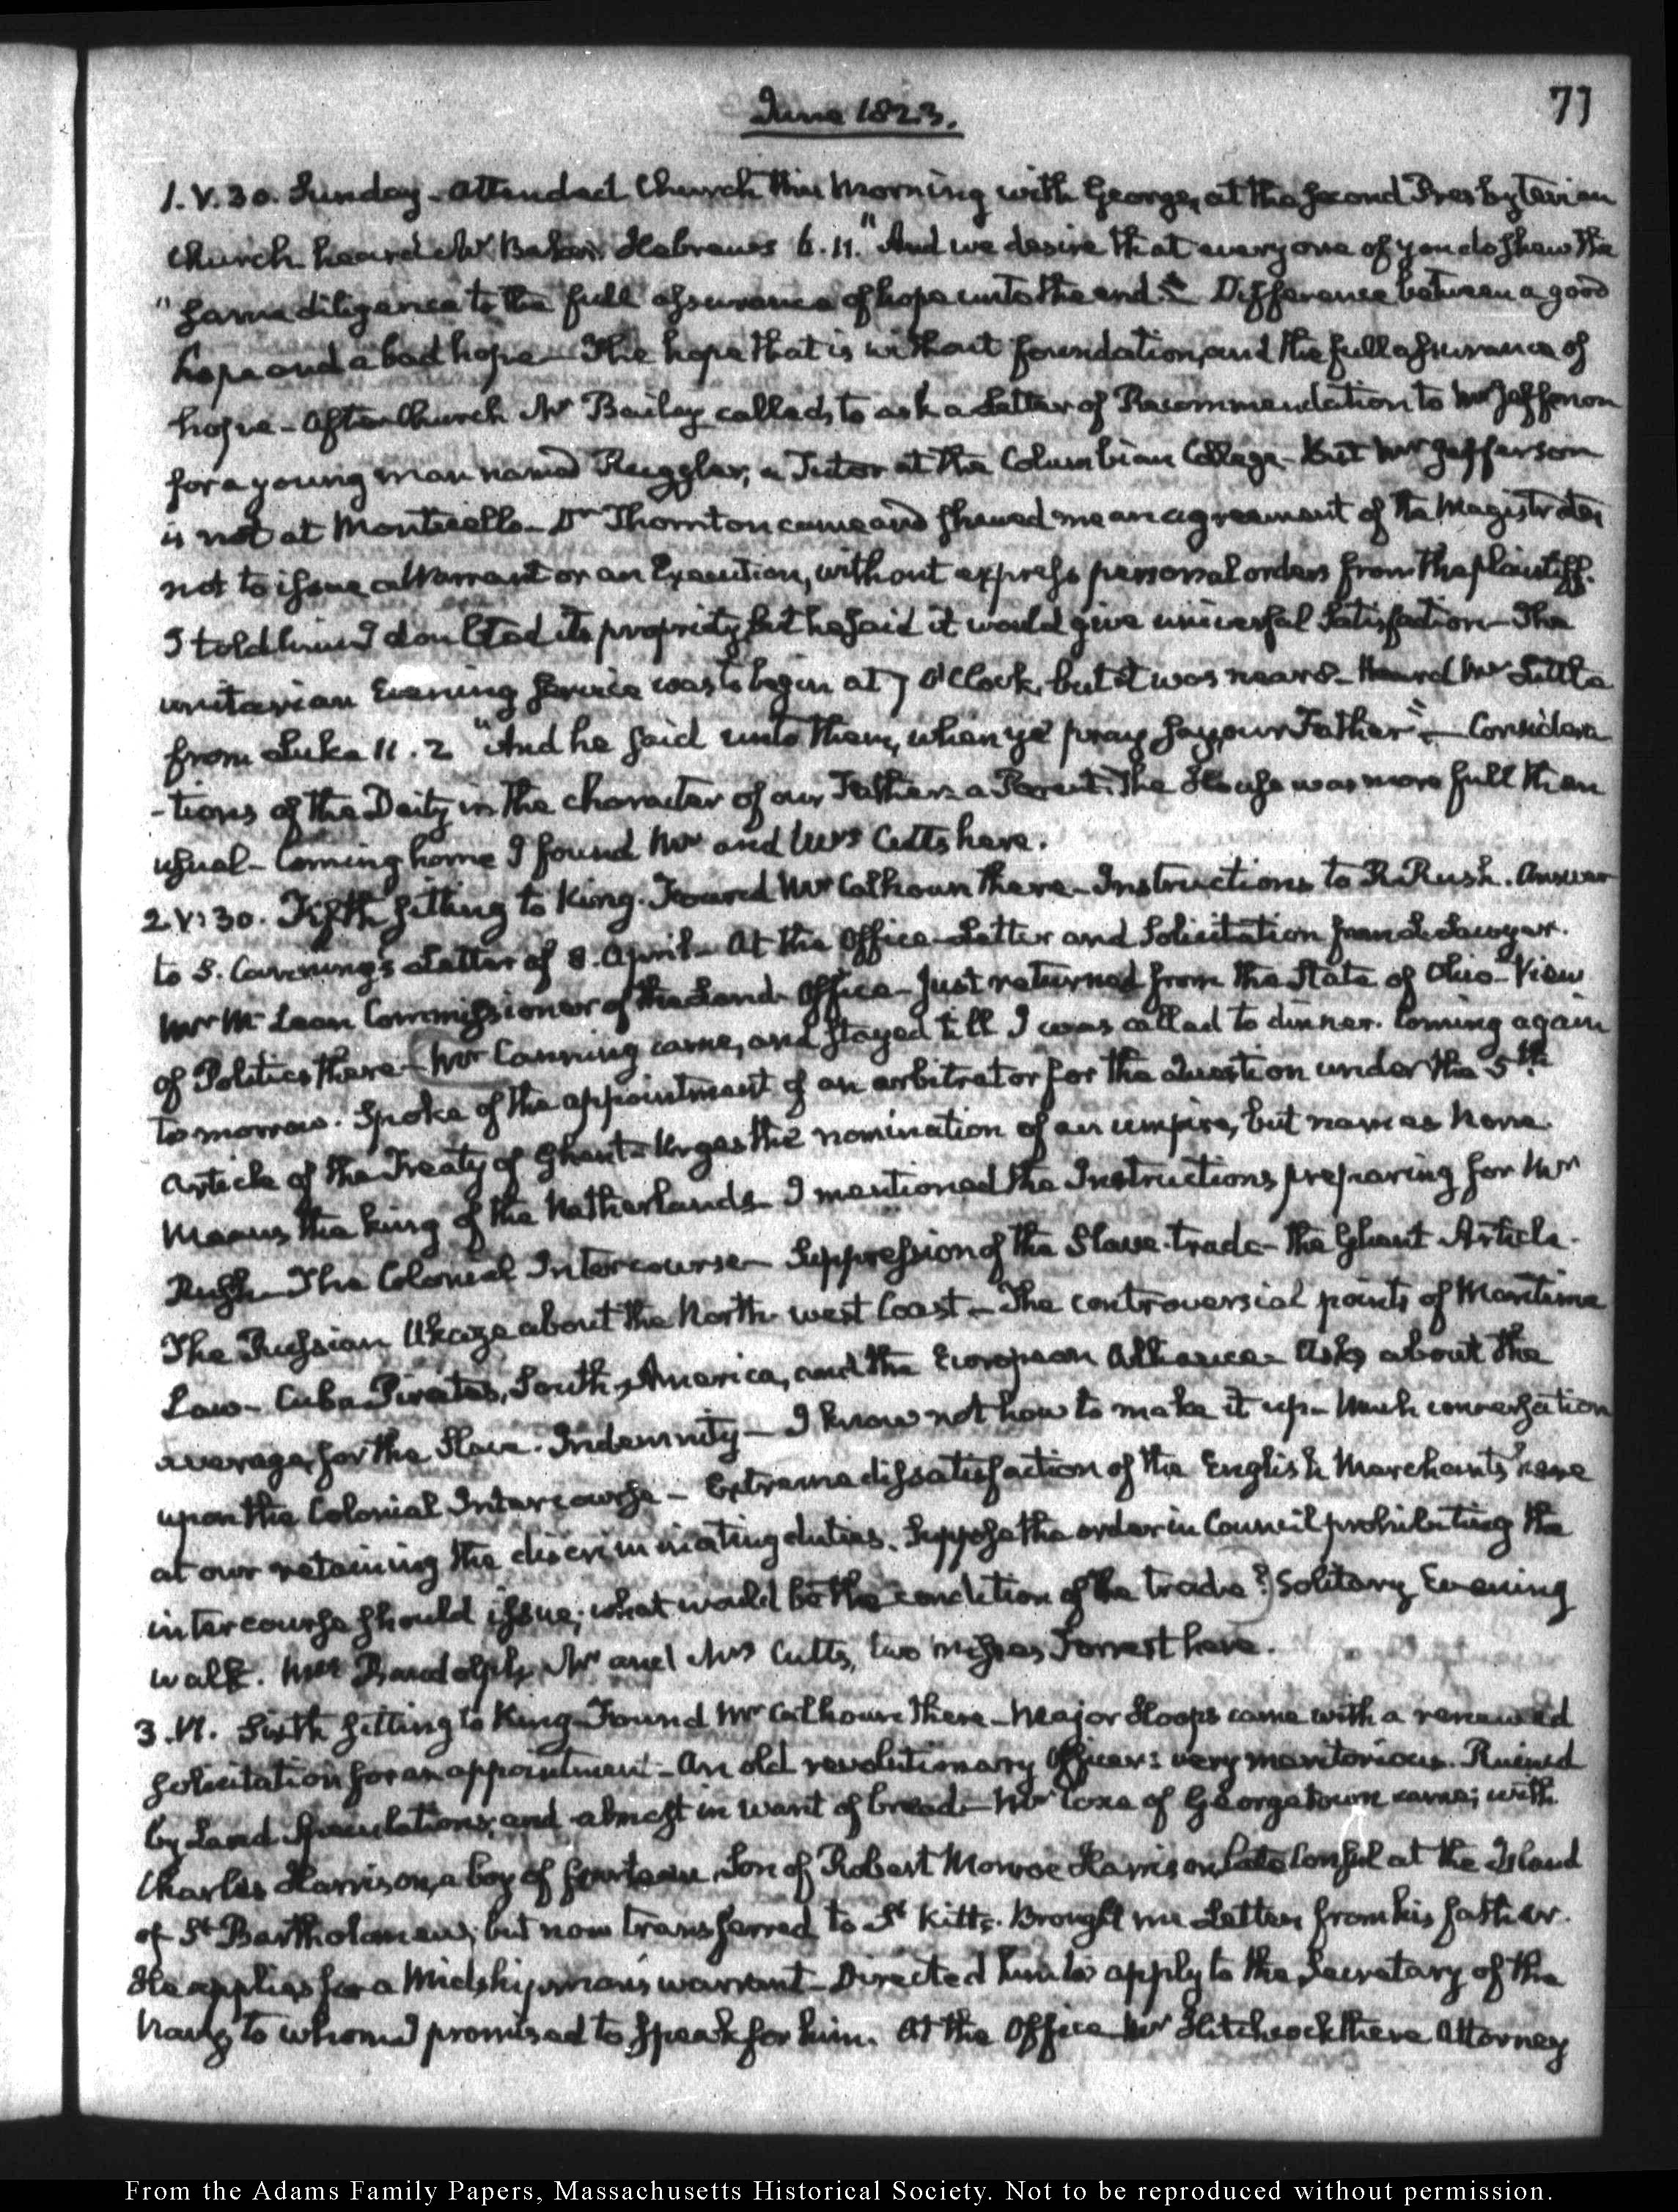 June 1823.
77
1. V.30. Sunday - Attended Church this Morning with George, at the second Presbyterian
Church heard Mr Baker. Hebrews 6.11. "And we desire that every one of you do shew the
"same diligence to the full assurance of hope unto the end." Difference between a good
hope and a bad hope - The hope that is without foundation, and the full assurance of
hope - After Church Mr Bailey called, to ask a Letter of Recommendation to Mr Jefferson
for a young man named Ruggles, a Tutor at the Columbian College - But Mr Jefferson
is not at Monticello - Dr Thornton came and shewed me an agreement of the Magistrates
not to issue a Warrant or an Execution, without express personal orders from the plaintiff.
I told him I doubted its propriety but he said it would give universal satisfaction - The
unitarian Evening service was to begin at 7 O'Clock, but it was near 8 - Heard Mr Little
from Luke 11.2 "And he said unto them, when ye pray say, our Father" - Considera
-tions of the Deity in the character of our Father - a Parent. The House was more full than
usual - Coming home I found Mr and Mrs Cutts here.
2. V:30. Fifth sitting to King. Found Mr Calhoun there - Instructions to R. Rush. Answer
to S. Canning's Letter of 8. April - At the Office - Letter and Solicitation from
Mr McLean Commissioner of the Land Office - just returned from the State of Ohio - View
of Politics there - Mr Canning came, and stayed till I was called to dinner. Coming again
tomorrow. Spoke of the appointment of an arbitrator for the question under the 5th
Article of the Treaty of Ghent - Urges the nomination of an umpire, but names none.
Means the king of the Netherlands - I mentioned the Instructions preparing for Mr
Rush - The Colonial Intercourse - Suppression of the Slave-trade - The Ghent Article -
The Russian Ukaze about the North-west Coast - The controversial points of Maritime
Law - Cuba Pirates, South-America, and the European Alliance - Asks about the
average, for the Slave-Indemnity - I know not how to make it up - Much conversation
upon the Colonial Intercourse - Extreme dissatisfaction of the English Merchants here
at our retaining the discriminating duties. Suppose the order in Council prohibiting the
intercourse should issue; what would be the condition of the trade? Solitary Evening
walk. Mrs Randolph, Mr and Mrs Cutts, two misses Forrest here.
3. VI. Sixth sitting to King - Found Mr Calhoun there - Major Hoops came with a renewed
solicitation for an appointment - An old revolutionary Officer: very meritorious. Ruined
by Land speculations, and almost in want of bread - Mr Coxe of Georgetown came; with
Charles Harrison, a boy of fourteen, Son of Robert Monroe Harrison late Consul at the Island
of St Bartholomew; but now transferred to St Kitts. Brought me Letters from his father.
He applies for a Midshipman's warrant - Directed him to apply to the Secretary of the
Navy to whom I promised to speak for him. At the Office Mr Hitchcock there Attorney
From the Adams Family Papers, Massachusetts Historical Society. Not to be reproduced without permission.